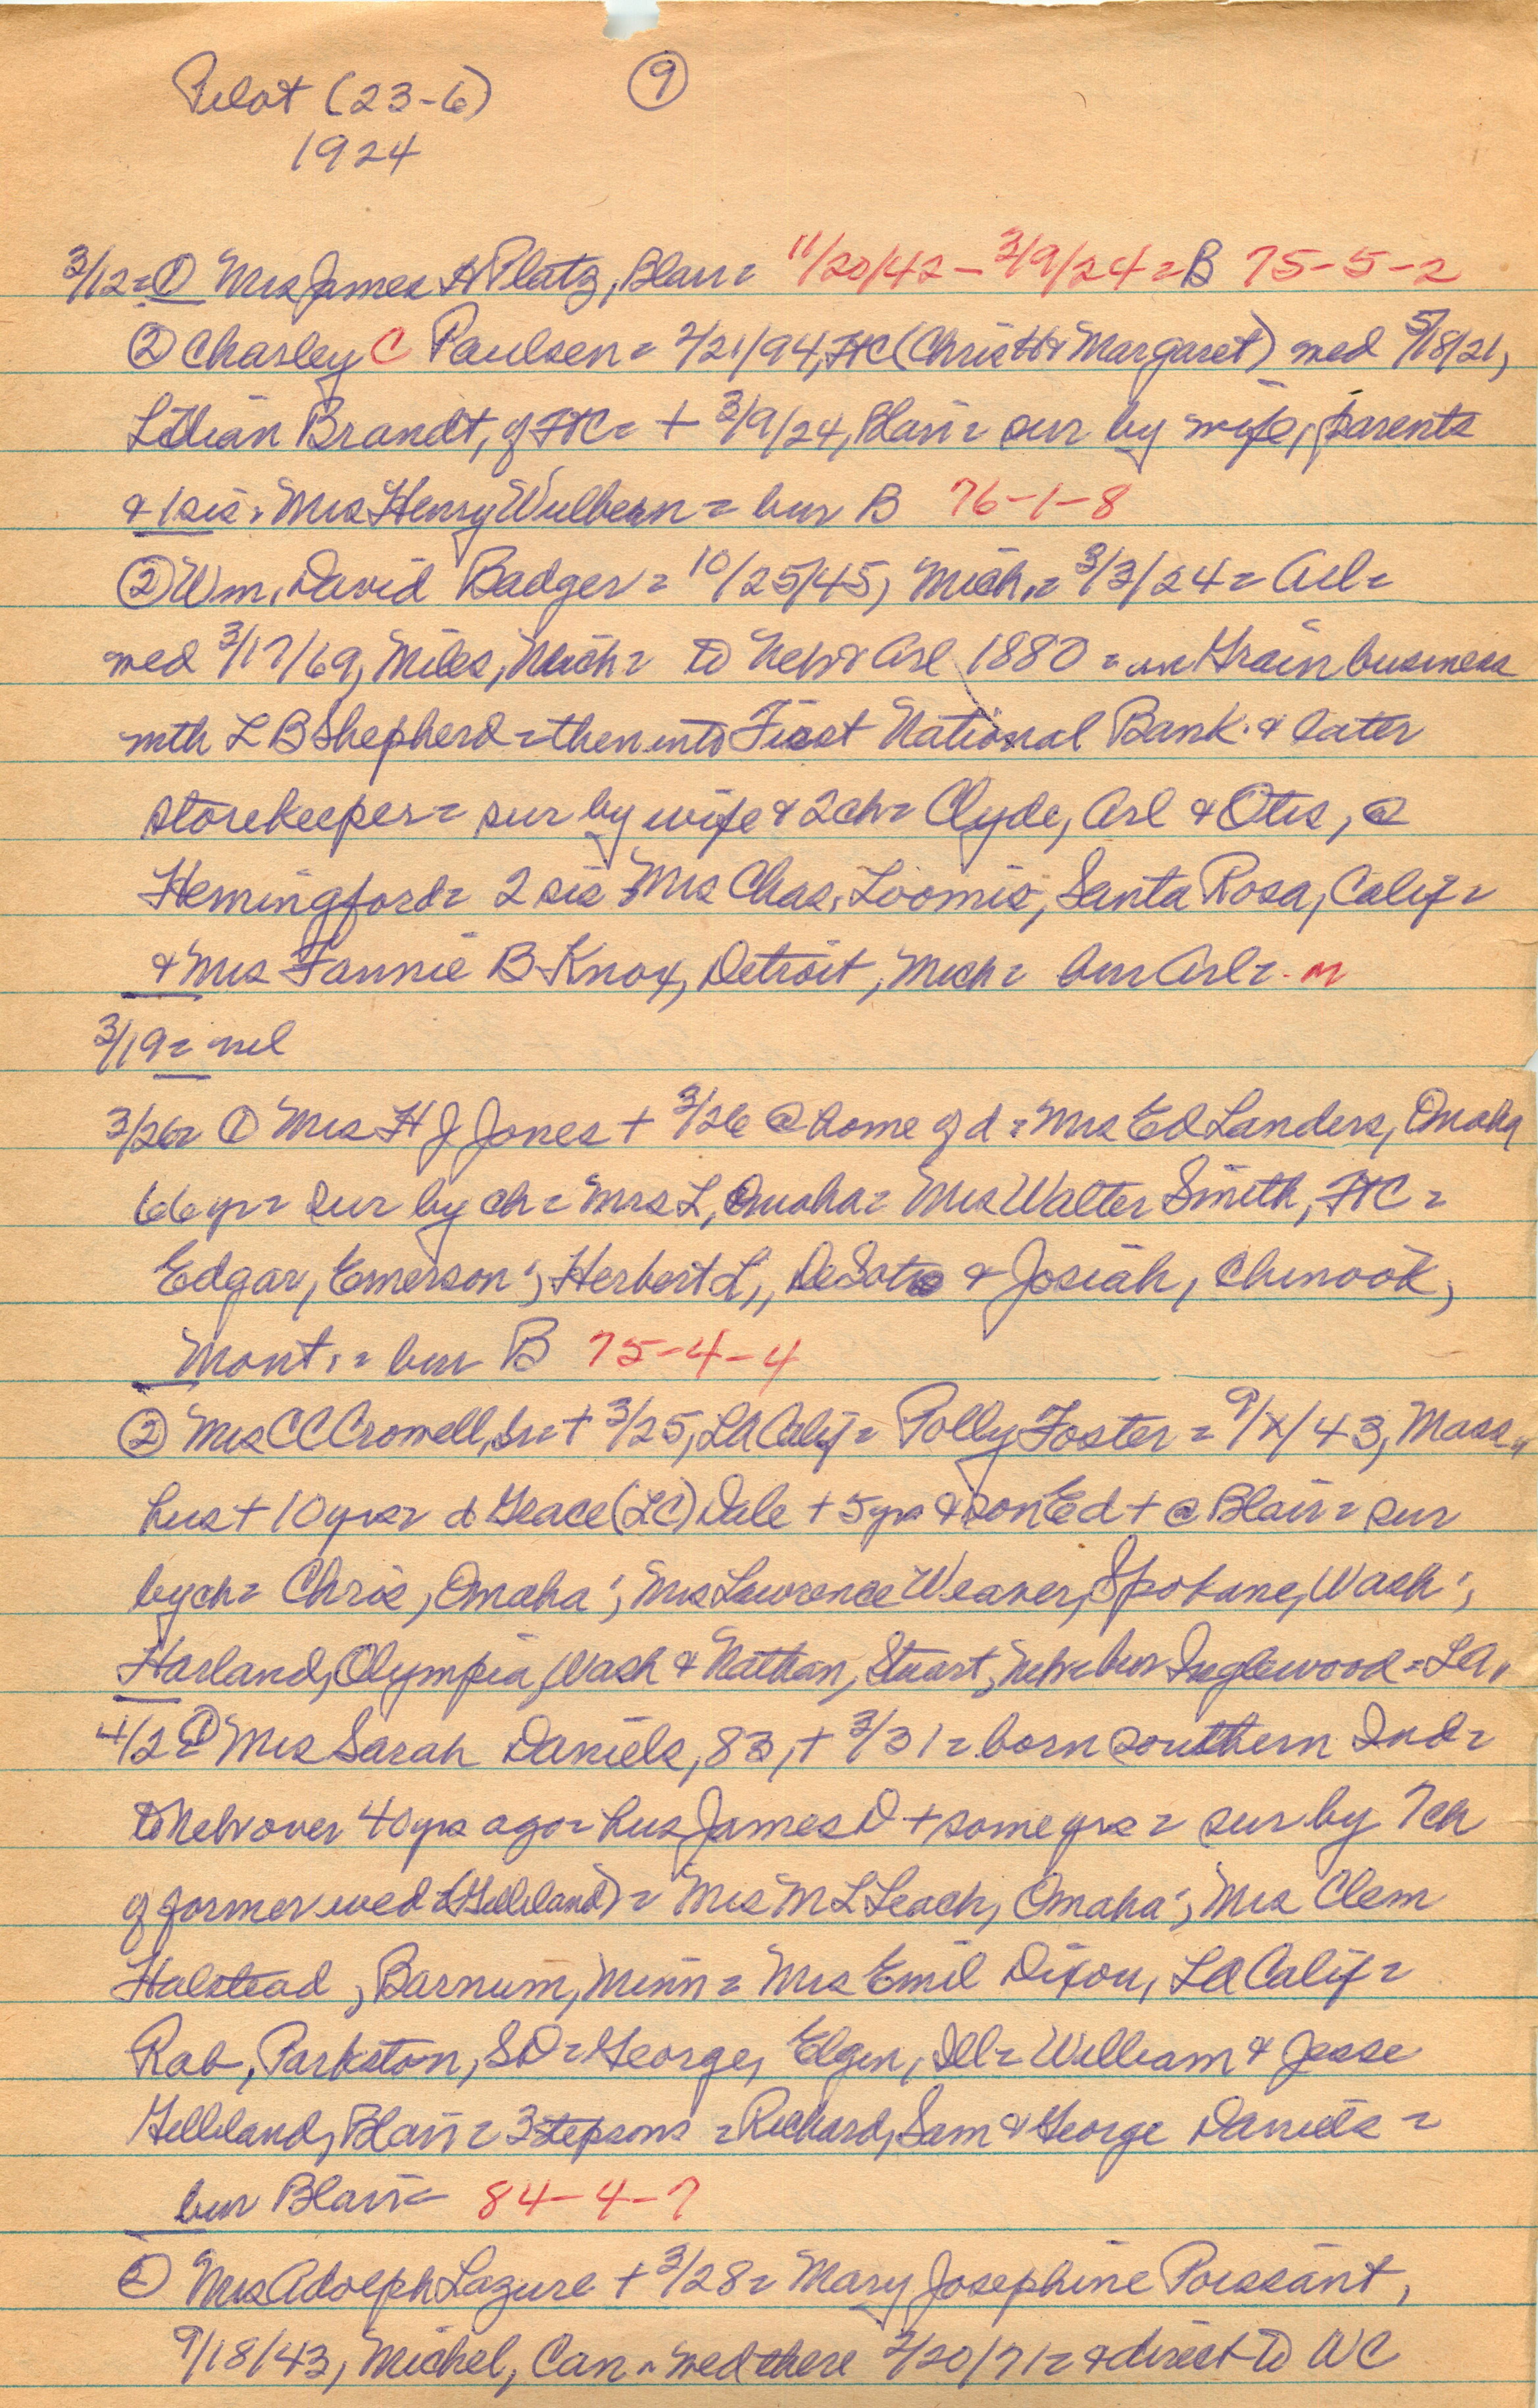 Pilot (23-6) ⑨
1924
3/12= ① Mrs James H Platz, Blair= 11/20/42 - 3/9/24 = B 75-5-2
② Charley C Paulsen= 2/21/94, FtC (Chris H & Margaret) wed 5/18/21,
Lillian Brandt, of FtC= + 3/9/24, Blair= sur by wife, parents
& 1 sis. Mrs Henry Wulbern = bur B 76-1-8
② Wm. David Badger = 10/25/45, Mich.= 3/3/24 = Arl=
wed 3/17/69, Miles, Mich= to Nebr & Arl 1880 = in Grain business
with L B Shepherd = then into First National Bank & later
storekeeper= sur by wife & 2ch= Clyde, Arl & Otis, @
Hemingford= 2 sis Mrs Chas. Loomis, Santa Rosa, Calif=
& Mrs Fannie B Knox, Detroit, Mich= bur Arl= m
3/19= nil
3/26= ① Mrs H J Jones + 3/26 @ home of d= Mrs Ed Landers, Omaha
66 yr= sur by ch = Mrs L, Omaha= Mrs Walter Smith, FtC =
Edgar, Emerson; Herbert L,, DeSoto & Josiah, Chinook,
Mont.= bur B 75-4-4
② Mrs C C Crowell, Sr=+ 3/25, LA Calif= Polly Foster = 9/x/43, Mass,
hus + 10yrs= d Grace (LC) Dale + 5 yrs & son Ed + @ Blair = sur
by ch= Chris, Omaha; Mrs Lawrence Weaver, Spokane, Wash;
Harland, Olympia, Wash & Nathan, Stuart, Nebr= bur Inglewood = LA,
4/2= ① Mrs Sarah Daniels, 83, + 3/31= born southern Ind=
to Nebr over 40 yrs ago= hus James D + some yrs = sur by 7ch
of former wed (Gilliland) = Mrs M L Leach, Omaha; Mrs Clem
Halstead, Barnum, Minn = Mrs Emil Dixon, LA Calif=
Rab, Parkston, SD= George, Elgin, Ill= William & Jesse
Gilliland, Blair = 3 stepsons = Richard, Sam & George Daniels =
bur Blair= 84-4-7
② Mrs Adolph Lazure + 3/28= Mary Josephine Poissant,
9/18/43, Michel, Can = wed there 2/20/71= & direct to WC